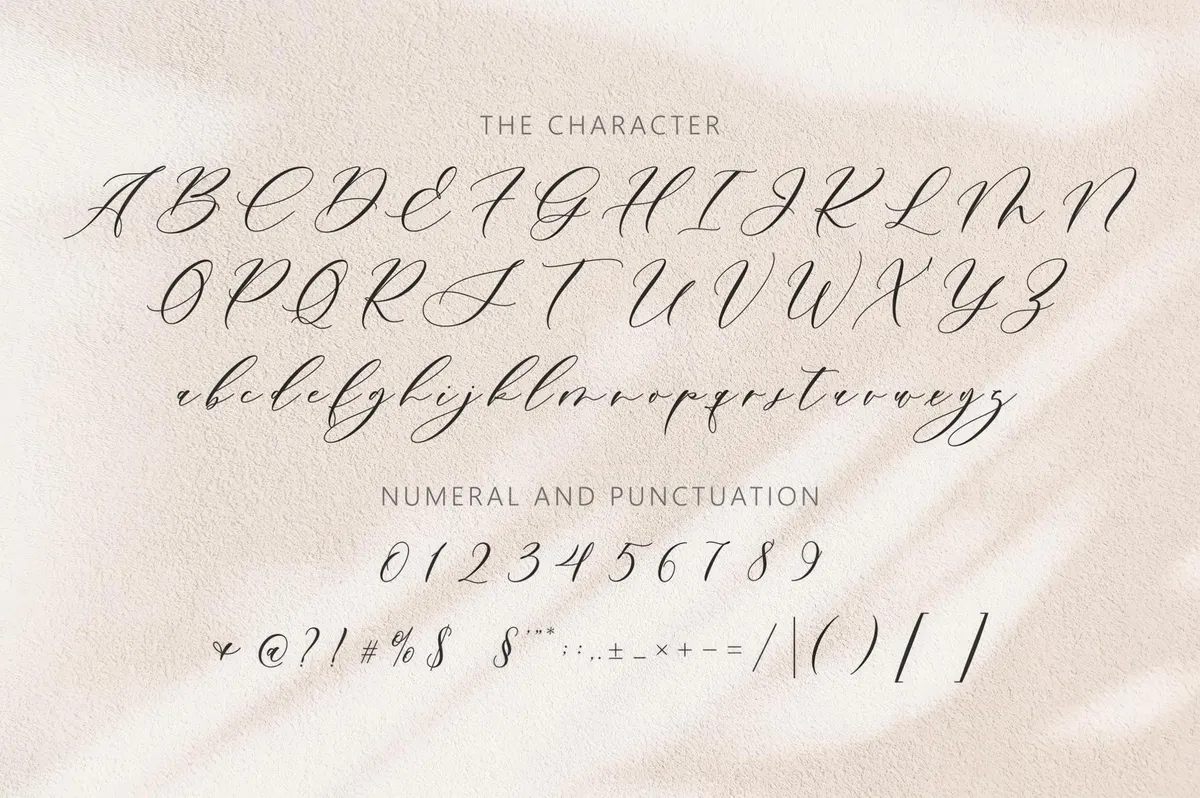 THE CHARACTER
A B C D E F G H I J K L M N
O P Q R S T U V W X Y Z
a b c d e f g h i j k l m n o p q r s t u v w x y z
NUMERAL AND PUNCTUATION
0 1 2 3 4 5 6 7 8 9
& @ ? ! # % $ § ' " * ; : , . ± _ × + − = / | ( ) [ ]